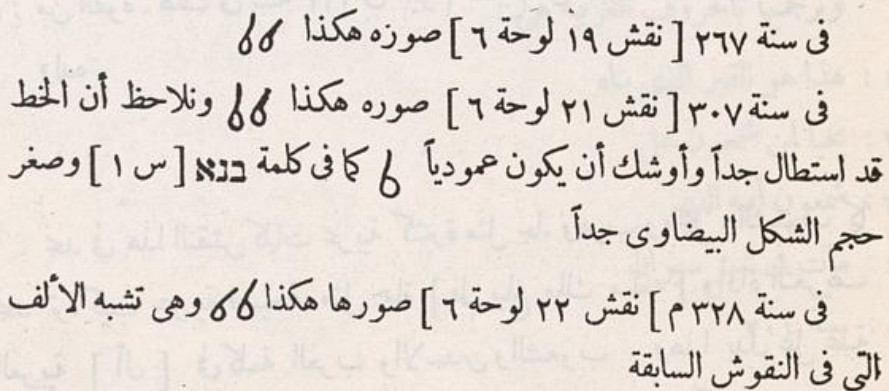 فى سنة ٢٦٧ [ نقش ١٩ لوحة ٦ ] صوزه هكذا
فى سنة ٣٠٧ [ نقش ٢١ لوحة ٦ ] صوره هكذا ونلاحظ أن الخط
قد استطال جداً وأوشك أن يكون عمودياً كما فى كلمة בנא [ س ١ ] وصغر
حجم الشكل البيضاوى جداً
فى سنة ٣٢٨ م ] نقش ٢٢ لوحة ٦ ] صورها هكذا وهى تشبه الألف
التى فى النقوش السابقة